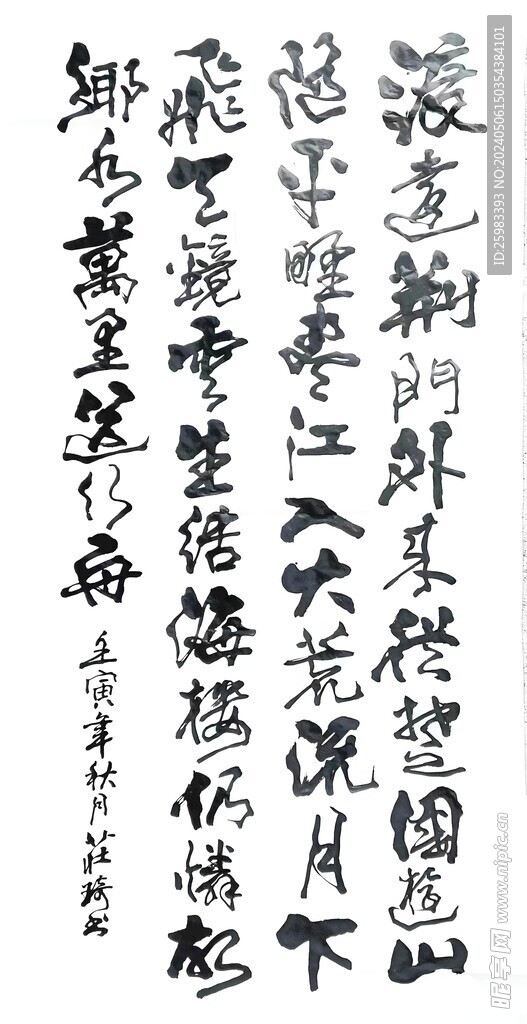 渡遠荆門外来從楚國遊山
隨平野盡江入大荒流月下
飛天鏡雲生結海樓仍憐故
鄉水萬里送行舟
壬寅年秋月莊琦書
ID:25983393 NO:20240506150354384101
昵享网 www.nipic.cn